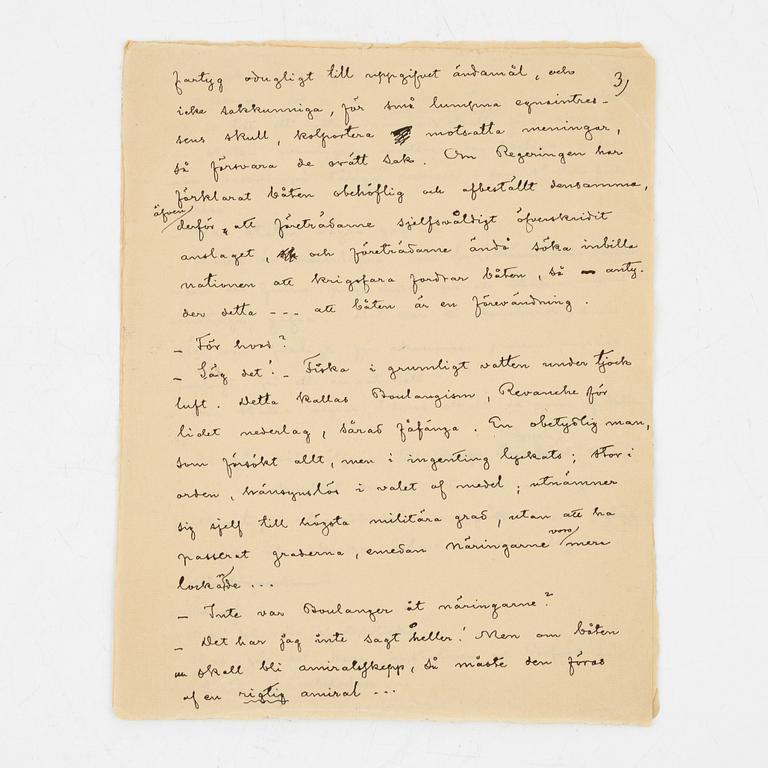 3)
fartyg odugligt till uppgifvet ändamål, och
icke sakkunniga, för små lumpna egnaintres-
sens skull, kolportera motsatta meningar,
så försvara de orätt sak. Om Regeringen har
förklarat båten obehöflig och afbeställt densamma,
äfven
derför att företrädarne sjelfsvåldigt öfverskridit
anslaget, och företrädarne ändå söka inbilla
nationen att krigsfara fordrar båten, så anty-
der detta --- att båten är en förevändning.
– För hvad?
– Säg det! – Fiska i grumligt vatten under tjock
luft. Detta kallas Boulangism, Revanche för
lidet nederlag, sårad fåfänga. En obetydlig man,
som försökt allt, men i ingenting lyckats; stor i
orden, hänsynslös i valet af medel; utnämner
sig sjelf till högsta militära grad, utan att ha
passerat graderna, emedan näringarne voro mera
lockande ...
– Inte var Boulanger åt näringarne?
– Det har jag inte sagt heller! Men om båten
skall bli amiralsskepp, så måste den föras
af en rigtig amiral ---